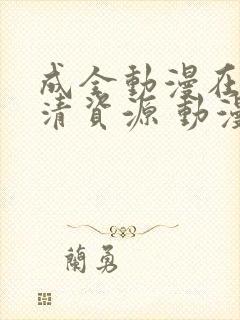 成全動漫在
清資源 動漫
蘭勇